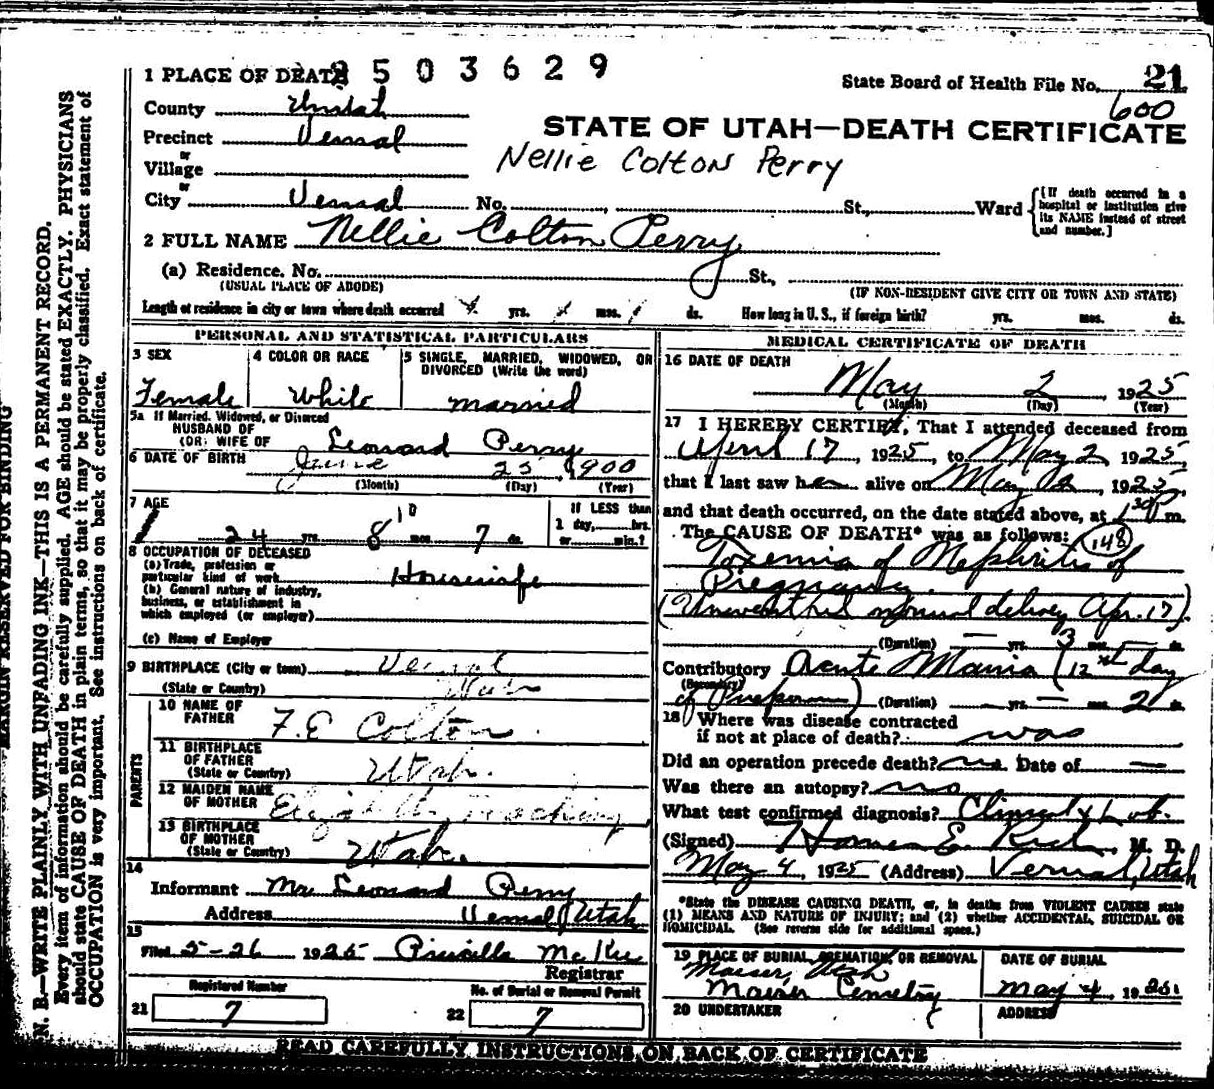 1 PLACE OF DEATH 2503629
State Board of Health File No. 21
600
County Uintah
Precinct Vernal
STATE OF UTAH—DEATH CERTIFICATE
or
Village
Nellie Colton Perry
or
City Vernal No. , St., Ward
{[If death occurred in a hospital or institution give its NAME instead of street and number.]
2 FULL NAME Nellie Colton Perry
(a) Residence. No. St.,
(USUAL PLACE OF ABODE) (IF NON-RESIDENT GIVE CITY OR TOWN AND STATE)
Length of residence in city or town where death occurred yrs. mos. ds. How long in U. S., if foreign birth? yrs. mos. ds.
PERSONAL AND STATISTICAL PARTICULARS
3 SEX
Female
4 COLOR OR RACE
White
5 SINGLE, MARRIED, WIDOWED, OR
DIVORCED (Write the word)
married
5a If Married, Widowed, or Divorced
HUSBAND OF
(OR) WIFE OF Leonard Perry
6 DATE OF BIRTH June 25 1900
(Month) (Day) (Year)
7 AGE
24 yrs. 8 mos. 7 ds.
10
If LESS than
1 day, hrs.
or min.?
8 OCCUPATION OF DECEASED
(a) Trade, profession or
particular kind of work Housewife
(b) General nature of industry,
business, or establishment in
which employed (or employer)
(c) Name of Employer
9 BIRTHPLACE (City or town) Vernal
(State or Country) Utah
PARENTS
10 NAME OF
FATHER F. E Colton
11 BIRTHPLACE
OF FATHER
(State or Country) Utah.
12 MAIDEN NAME
OF MOTHER
13 BIRTHPLACE
OF MOTHER
(State or Country) Utah.
14
Informant Mr Leonard Perry
Address Vernal, Utah
15
Filed 5-26 1925 Priscilla McKee
Registrar
Registered Number
21 7
No. of Burial or Removal Permit
22 7
MEDICAL CERTIFICATE OF DEATH
16 DATE OF DEATH
May 2, 1925
(Month) (Day) (Year)
17 I HEREBY CERTIFY, That I attended deceased from
April 17, 1925, to May 2 1925
that I last saw her alive on May 2, 1925,
and that death occurred, on the date stated above, at 1 30 P m.
The CAUSE OF DEATH* was as follows: 148
Toxemia of Nephritis of
Pregnancy.
(Uneventful normal delivery Apr. 17).
(Duration) — yrs. 3 mos. — ds.
Contributory Acute Mania (12th day
(Secondary)
of Puerperium) (Duration) yrs. — mos. 2 ds.
18 Where was disease contracted
if not at place of death? was
Did an operation precede death? no. Date of —
Was there an autopsy? no
What test confirmed diagnosis? Clinical & Lab.
(Signed) Homer E. Rich, M. D.
May 4, 1925 (Address) Vernal, Utah
*State the DISEASE CAUSING DEATH, or, in deaths from VIOLENT CAUSES state
(1) MEANS AND NATURE OF INJURY; and (2) whether ACCIDENTAL, SUICIDAL OR
HOMICIDAL. (See reverse side for additional space.)
19 PLACE OF BURIAL, CREMATION, OR REMOVAL
Maeser, Utah
Maeser Cemetery
DATE OF BURIAL
May 4, 1925
20 UNDERTAKER
ADDRESS
READ CAREFULLY INSTRUCTIONS ON BACK OF CERTIFICATE
MARGIN RESERVED FOR BINDING
N. B.—WRITE PLAINLY WITH UNFADING INK—THIS IS A PERMANENT RECORD.
Every item of information should be carefully supplied. AGE should be stated EXACTLY. PHYSICIANS
should state CAUSE OF DEATH in plain terms, so that it may be properly classified. Exact statement of
OCCUPATION is very important. See instructions on back of certificate.